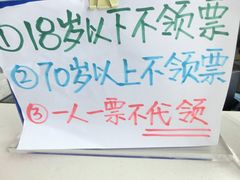 ①18岁以下不领票
②70岁以上不领票
③一人一票不代领